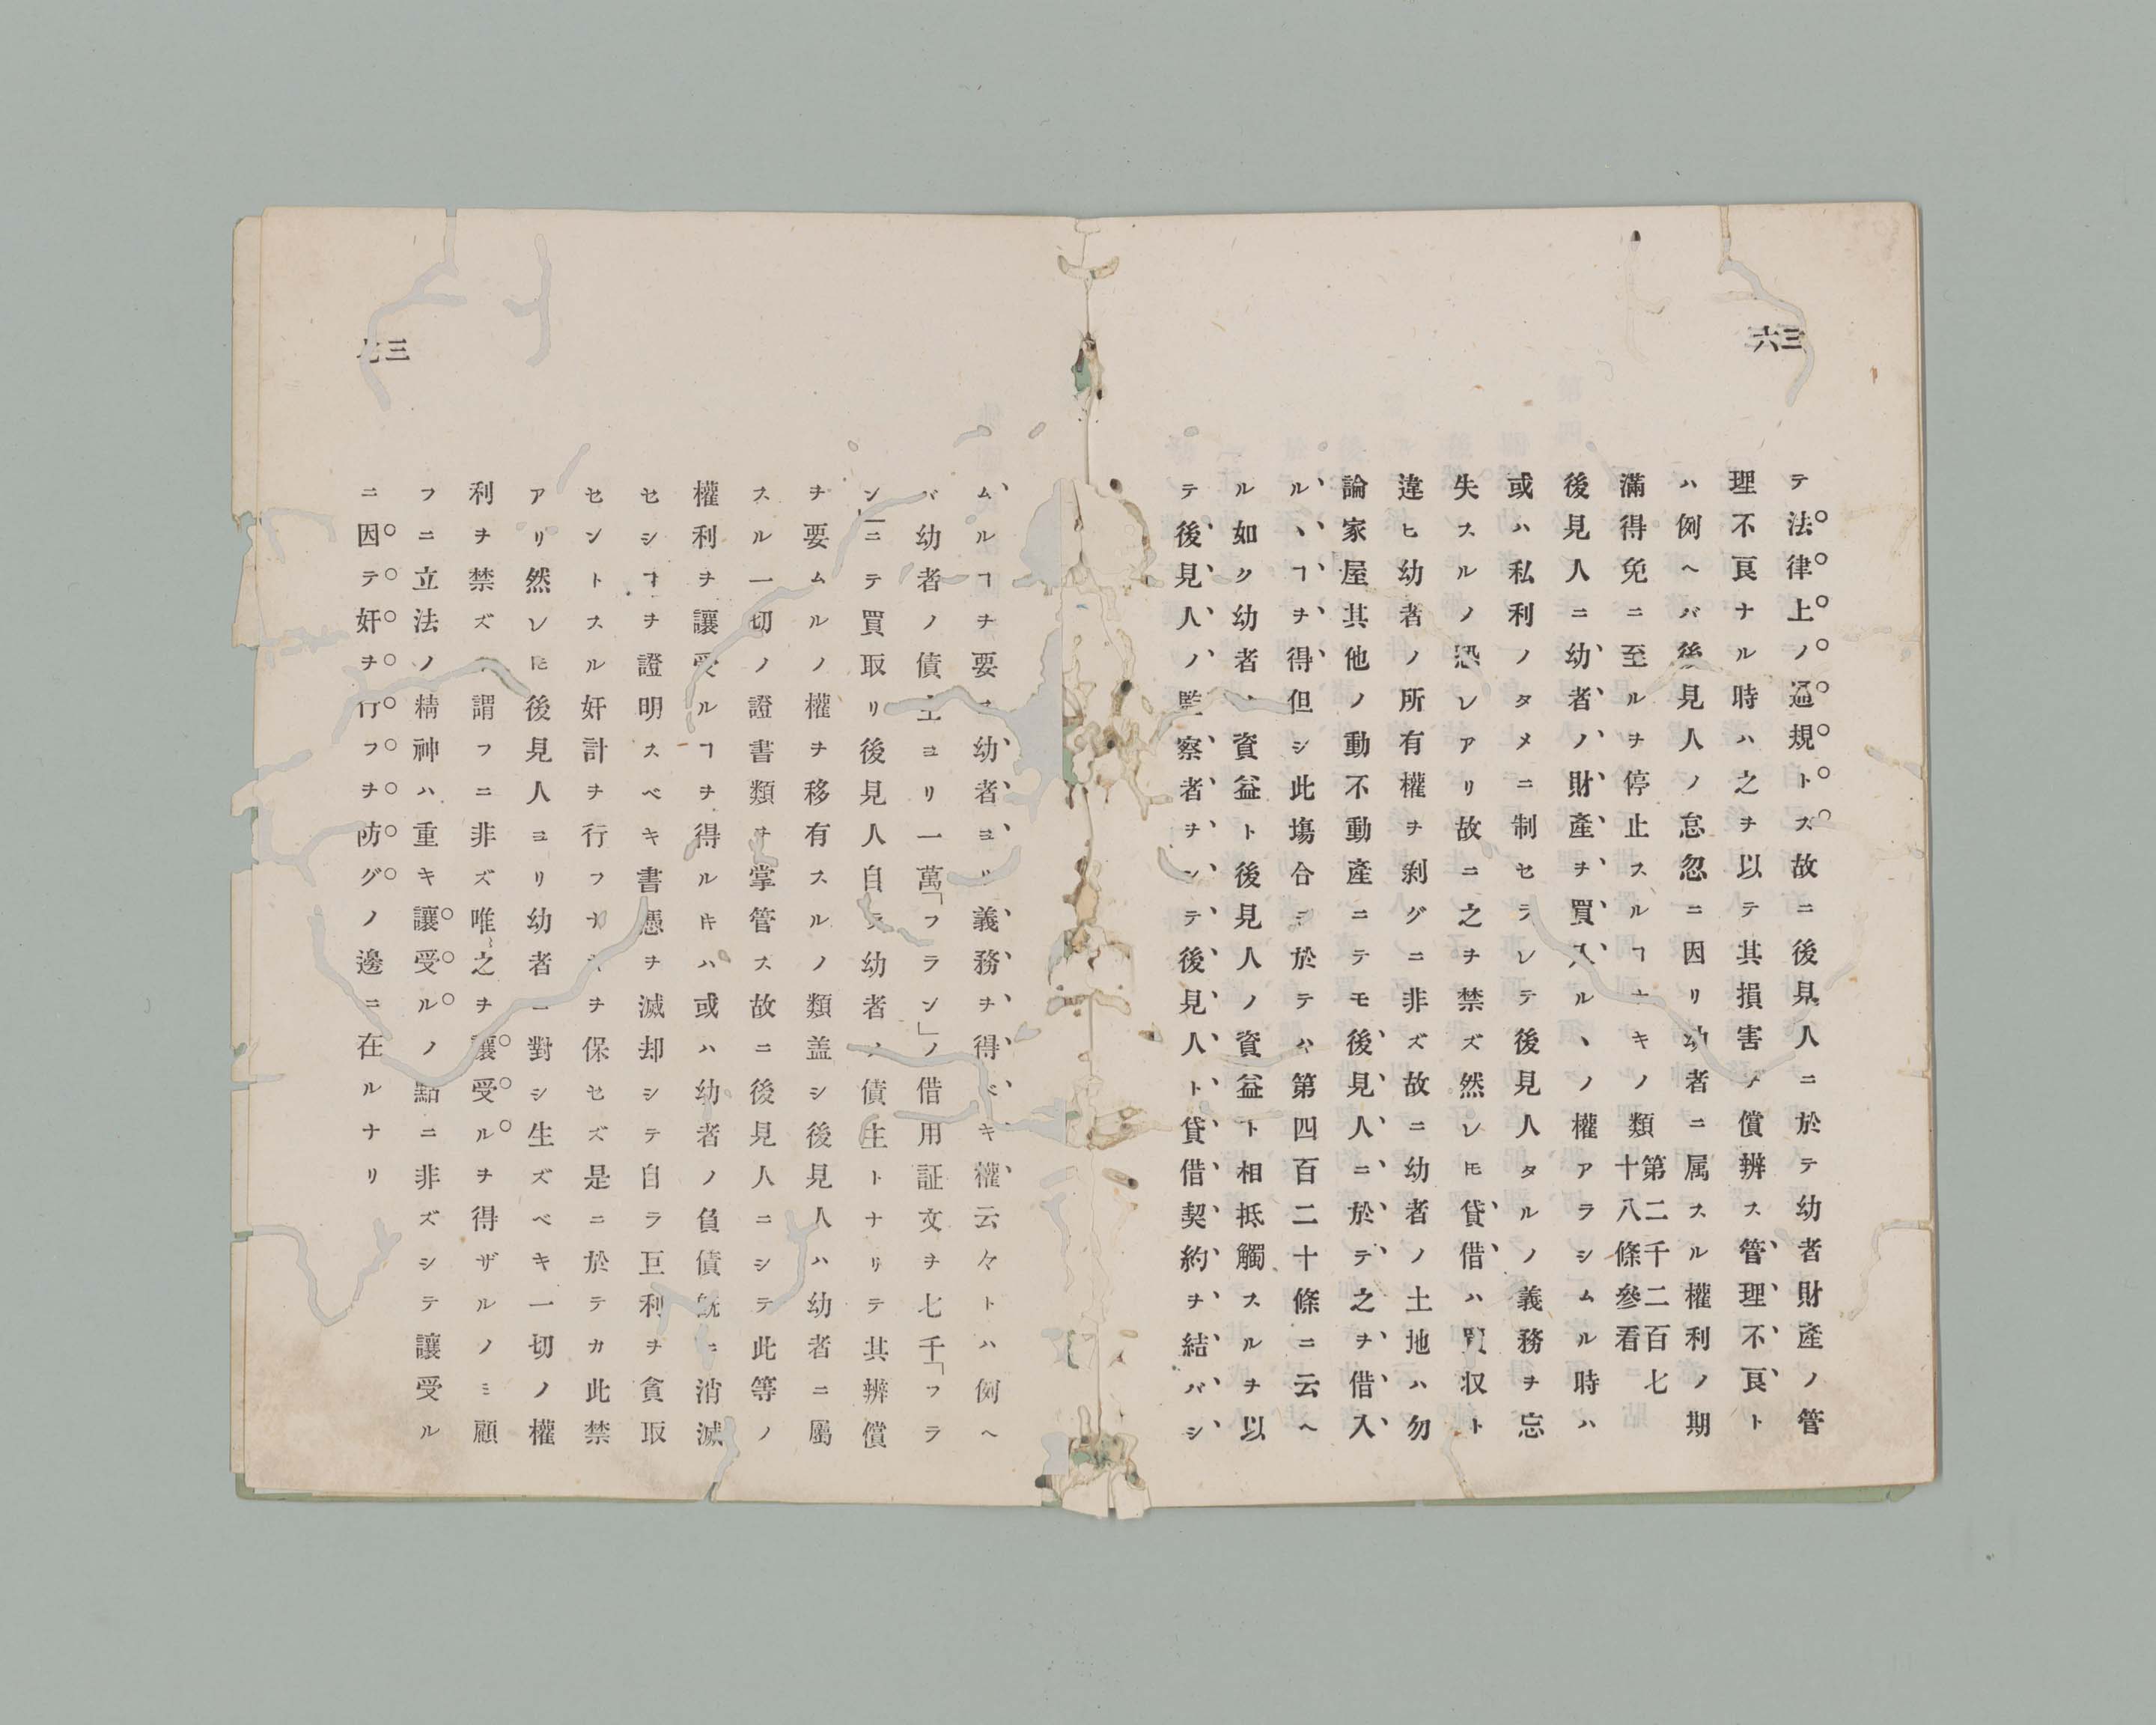 三六
テ法律上ノ通規トス故ニ後見人ニ於テ幼者財產ノ管
理不良ナル時ハ之ヲ以テ其損害ノ償辨ス管理不良ト
ハ例ヘバ後見人ノ怠忽ニ因リ幼者ニ属スル權利ノ期
滿得免ニ至ルヲ停止スルヿナキノ類第二千二百七十八條參看
後見人ニ幼者ノ財產ヲ買入ルヽノ權アラシムル時ハ
或ハ私利ノタメニ制セラレテ後見人タルノ義務ヲ忘
失スルノ恐レアリ故ニ之ヲ禁ズ然レ𪜈貸借ハ買収ト
違ヒ幼者ノ所有權ヲ剥グニ非ズ故ニ幼者ノ土地ハ勿
論家屋其他ノ動不動產ニテモ後見人ニ於テ之ヲ借入
ルヽヿヲ得但シ此塲合ニ於テハ第四百二十條ニ云ヘ
ル如ク幼者ノ資益ト後見人ノ資益ト相抵觸スルヲ以
テ後見人ノ監察者ヲシテ後見人ト貸借契約ヲ結バシ
三七
ムルヿヲ要ス幼者ヨリ義務ヲ得ベキ權云々トハ例ヘ
バ幼者ノ債主ヨリ一萬「フラン」ノ借用証文ヲ七千「フラ
ン」ニテ買取リ後見人自ラ幼者ノ債主トナリテ其辨償
ヲ要ムルノ權ヲ移有スルノ類盖シ後見人ハ幼者ニ屬
スル一切ノ證書類ヲ掌管ス故ニ後見人ニシテ此等ノ
權利ヲ讓受ルヿヲ得ル𪜈ハ或ハ幼者ノ負債既ニ消滅
セシヿヲ證明スベキ書憑ヲ滅却シテ自ラ巨利ヲ貪取
セントスル奸計ヲ行フナキヲ保セズ是ニ於テカ此禁
アリ然レ𪜈後見人ヨリ幼者ニ對シ生ズベキ一切ノ權
利ヲ禁ズト謂フニ非ズ唯之ヲ讓受ルヲ得ザルノミ顧
フニ立法ノ精神ハ重キ讓受ルノ點ニ非ズシテ讓受ル
ニ因テ奸ヲ行フヲ防グノ邊ニ在ルナリ